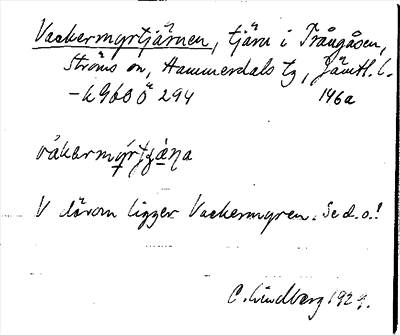 Vackermyrtjärnen, tjärn i Trångåsen,
Ströms sn, Hammerdals tg, Jämtl. l.
146a
våkarmyrtjäna
V därom ligger Vackermyren. Se d.o.!
C. Lindberg 1929.